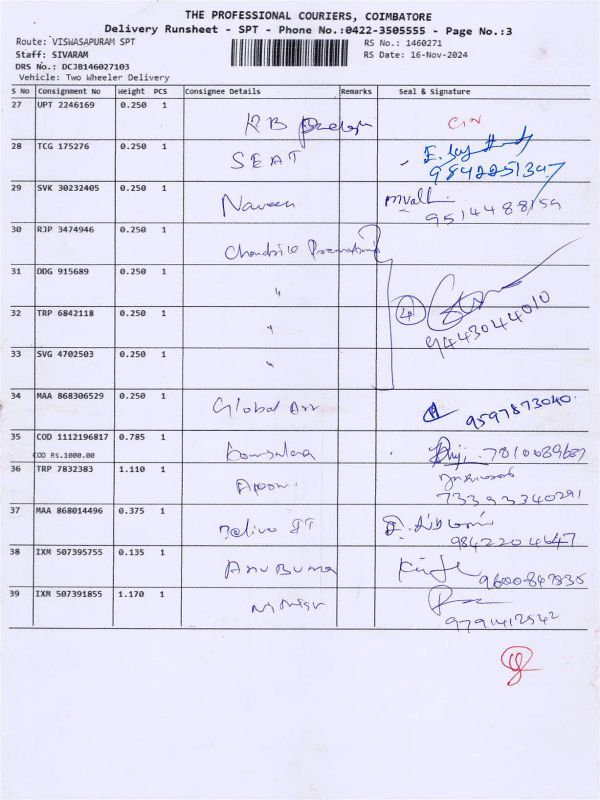 THE PROFESSIONAL COURIERS, COIMBATORE
Delivery Runsheet - SPT - Phone No.:0422-3505555 - Page No.:3
Route: VISWASAPURAM SPT
RS No.: 1460271
Staff: SIVARAM
RS Date: 16-Nov-2024
DRS No.: DCJB146027103
Vehicle: Two Wheeler Delivery
S No Consignment No Weight PCS Consignee Details Remarks Seal & Signature
27 UPT 2246169 0.250 1 KR B
28 TCG 175276 0.250 1 SEAT
9842251347
29 SVK 30232405 0.250 1 Naveen mvalli
9514488159
30 RJP 3474946 0.250 1
31 DDG 915689 0.250 1 "
32 TRP 6842118 0.250 1 " 4
9443044010
33 SVG 4702503 0.250 1 "
34 MAA 868306529 0.250 1 Global Art 9597873040
35 COD 1112196817 0.785 1 7810089687
COD Rs.1000.00
36 TRP 7832383 1.110 1
73393340291
37 MAA 868014496 0.375 1
9842204647
38 IXM 507395755 0.135 1 Anubuma 9600847835
39 IXM 507391855 1.170 1
9791412542